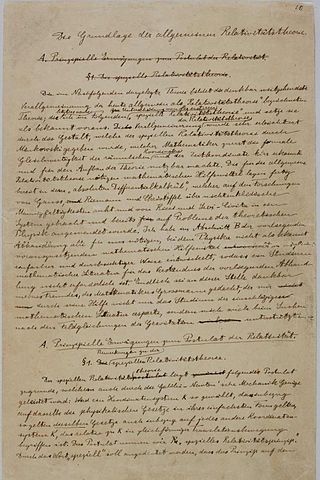 10
Die Grundlage der allgemeinen Relativitätstheorie.
A. Prinzipielle Erwägungen zum Postulat der Relativität.
§1. Die spezielle Relativitätstheorie.
Die im Nachfolgenden dargelegte Theorie bildet die denkbar weitgehendste
Verallgemeinerung der heute allgemein als „Relativitätstheorie" bezeichneten
Theorie; die im folgenden „spezielle Relativitätstheorie" und setze sie
als bekannt voraus. Die Verallgemeinerung wurde sehr erleichtert
durch die Gestalt, welche der speziellen Relativitätstheorie durch
Minkowski gegeben wurde, welcher Mathematiker zuerst die formale
Gleichwertigkeit der räumlichen und der Zeitkoordinate klar erkannte
und für den Aufbau der Theorie nutzbar machte. Die für die allgemeine
Relativitätstheorie nötigen mathematischen Hilfsmittel lagen fertig
bereit in dem „absoluten Differentialkalkül", welcher auf den Forschungen
von Gauss, Riemann und Christoffel über nichteuklidische
Mannigfaltigkeiten ruht und von Ricci und Levi-Civita in ein
System gebracht und bereits auf Probleme der theoretischen
Physik angewendet wurde. Ich habe im Abschnitt B der vorliegenden
Abhandlung alle für uns nötigen, bei dem Physiker nicht als bekannt
vorauszusetzenden mathematischen Hilfsmittel in möglichst
einfacher und durchsichtiger Weise entwickelt, sodass ein Studium
mathematischer Literatur für das Verständnis der vorliegenden Abhand-
lung nicht erforderlich ist. Endlich sei an dieser Stelle dankbar
meines Freundes, des Mathematikers Grossmann, gedacht, der mir
durch seine Hilfe nicht nur das Studium der einschlägigen
mathematischen Literatur ersparte, sondern mich auch beim Suchen
nach den Feldgleichungen der Gravitation unterstützte.
A. Prinzipielle Erwägungen zum Postulat der Relativität.
§1. Bemerkungen zu der speziellen Relativitätstheorie.
Der speziellen Relativitätstheorie liegt folgendes Postulat
zugrunde, welchem auch durch die Galilei-Newton'sche Mechanik Genüge
geleistet wird: Wird ein Koordinatensystem K so gewählt, dass in bezug
auf dasselbe die physikalischen Gesetze in ihrer einfachsten Form gelten,
so gelten dieselben Gesetze auch in bezug auf jedes andere Koordinaten-
system K', das relativ zu K in gleichförmiger Translationsbewegung
begriffen ist. Dies Postulat nennen wir „spezielles Relativitätsprinzip".
Durch das Wort „speziell" soll angedeutet werden, dass das Prinzip auf den